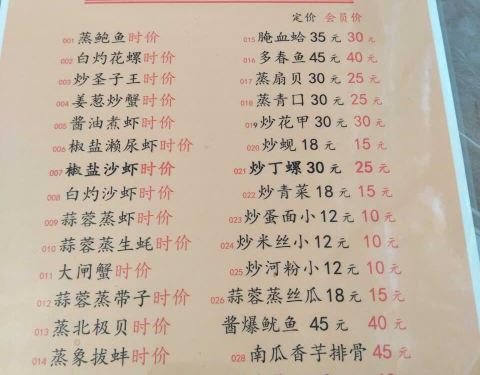 定价 会员价
001 蒸鲍鱼时价
002 白灼花螺时价
003 炒圣子王时价
004 姜葱炒蟹时价
005 酱油煮虾时价
006 椒盐濑尿虾时价
007 椒盐沙虾时价
008 白灼沙虾时价
009 蒜蓉蒸虾时价
010 蒜蓉蒸生蚝时价
011 大闸蟹时价
012 蒜蓉蒸带子时价
013 蒸北极贝时价
014 蒸象拔蚌时价
015 腌血蛤 35元 30元
016 多春鱼 45元 40元
017 蒸扇贝 30元 25元
018 蒸青口 30元 25元
019 炒花甲 30元 25元
020 炒蚬 18元 15元
021 炒丁螺 30元 25元
022 炒青菜 18元 15元
023 炒蛋面小 12元 10元
024 炒米丝小 12元 10元
025 炒河粉小 12元 10元
026 蒜蓉蒸丝瓜 18元 15元
酱爆鱿鱼 45元 40元
028 南瓜香芋排骨 45元